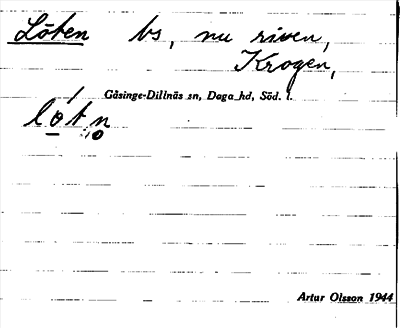 Löten bs, nu riven,
Krogen,
Gåsinge-Dillnäs sn, Daga hd, Söd. l.
lo´tn
Artur Olsson 1944